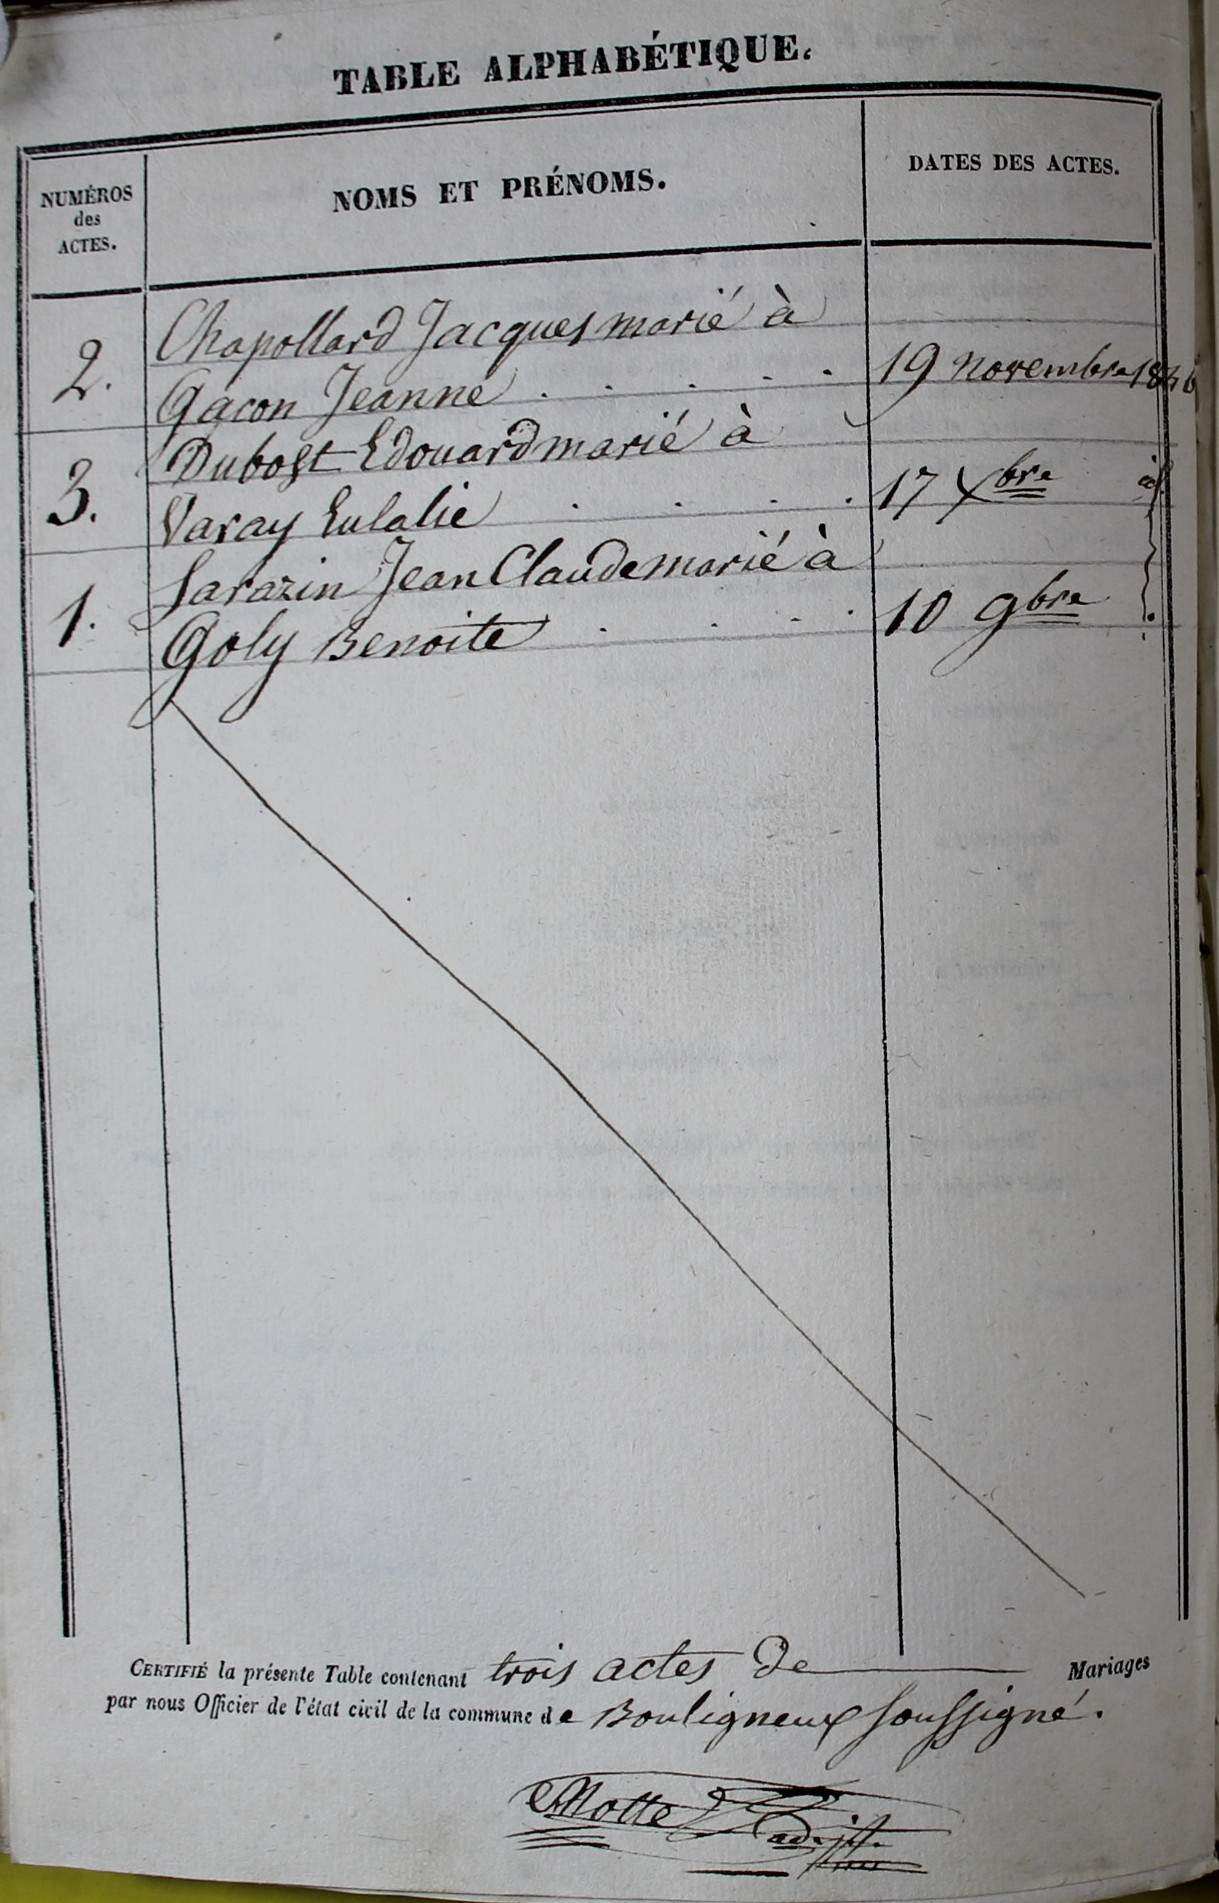 TABLE ALPHABÉTIQUE.
NUMÉROS
des
ACTES.
NOMS ET PRÉNOMS.
DATES DES ACTES.
Chapollard Jacques marié à
2. Gacon Jeanne . . . . 19 novembre 1846
Dubost Edouard marié à
3. Varay Eulalie . . . . 17 Xbre id
Sarazin Jean Claude marié à
1. Goly Benoite . . . . 10 9bre
CERTIFIÉ la présente Table contenant trois actes de Mariages
par nous Officier de l'état civil de la commune de Bouligneux soussigné.
Motte adjt.